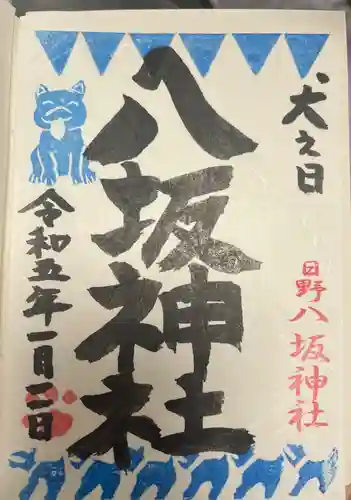 犬之日
日野八坂神社
八坂神社
令和五年一月一一日